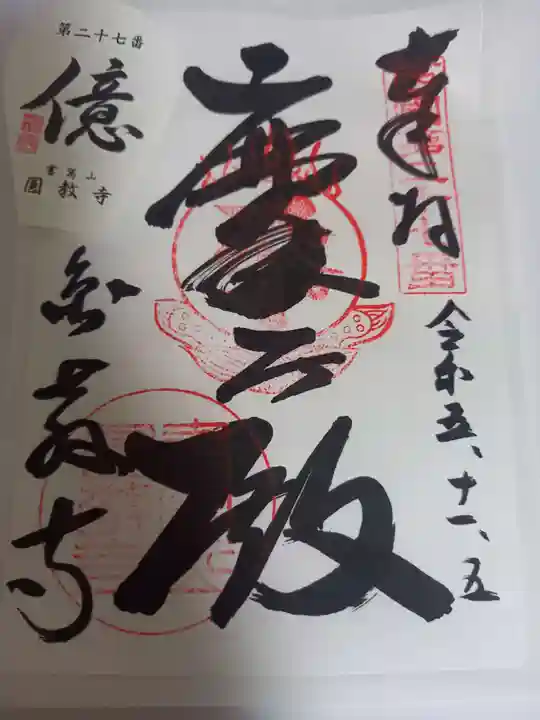 奉拝
令和五、十一、五
摩尼殿
圓教寺
第二十七番
億
書寫山
圓教寺